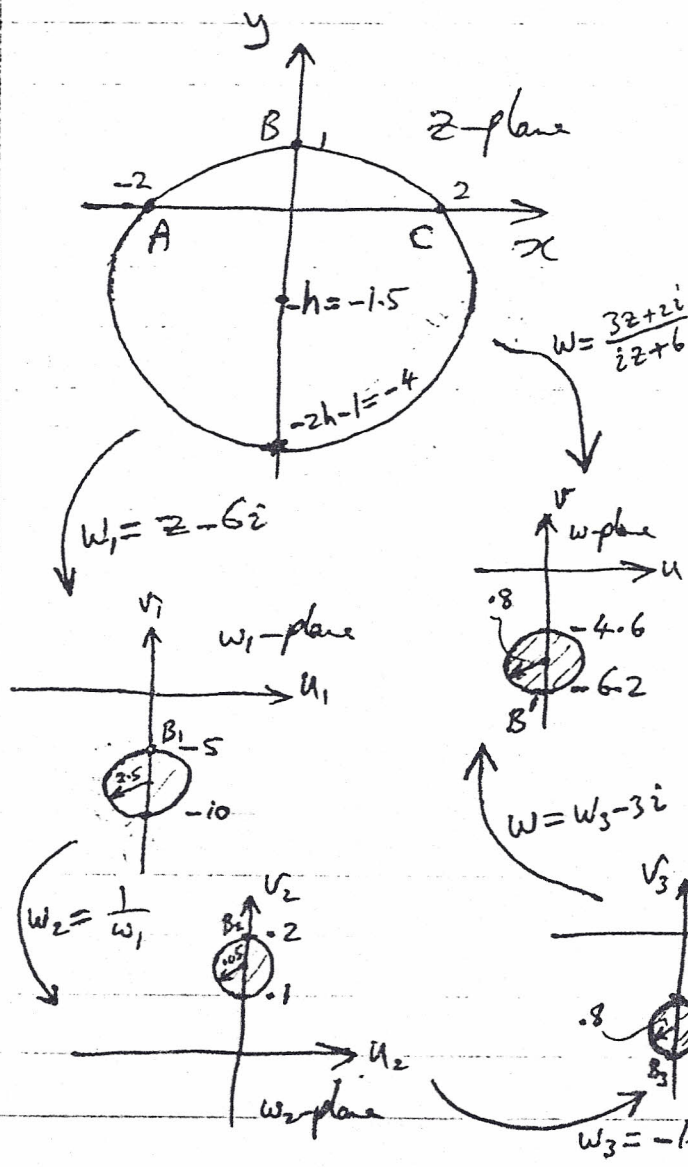 y
B
1
z-plane
-2
2
A
C
x
-h=-1.5
w= 3z+2i / iz+6
-2h-1=-4
w₁= z-6i
v
w-plane
u
.8
-4.6
-6.2
B'
v₁
w₁-plane
u₁
B₁
-5
2.5
-10
w=w₃-3i
v₃
w₂= 1/w₁
v₂
B₂
.2
.05
.1
.8
B₃
u₂
w₂-plane
w₃=-1